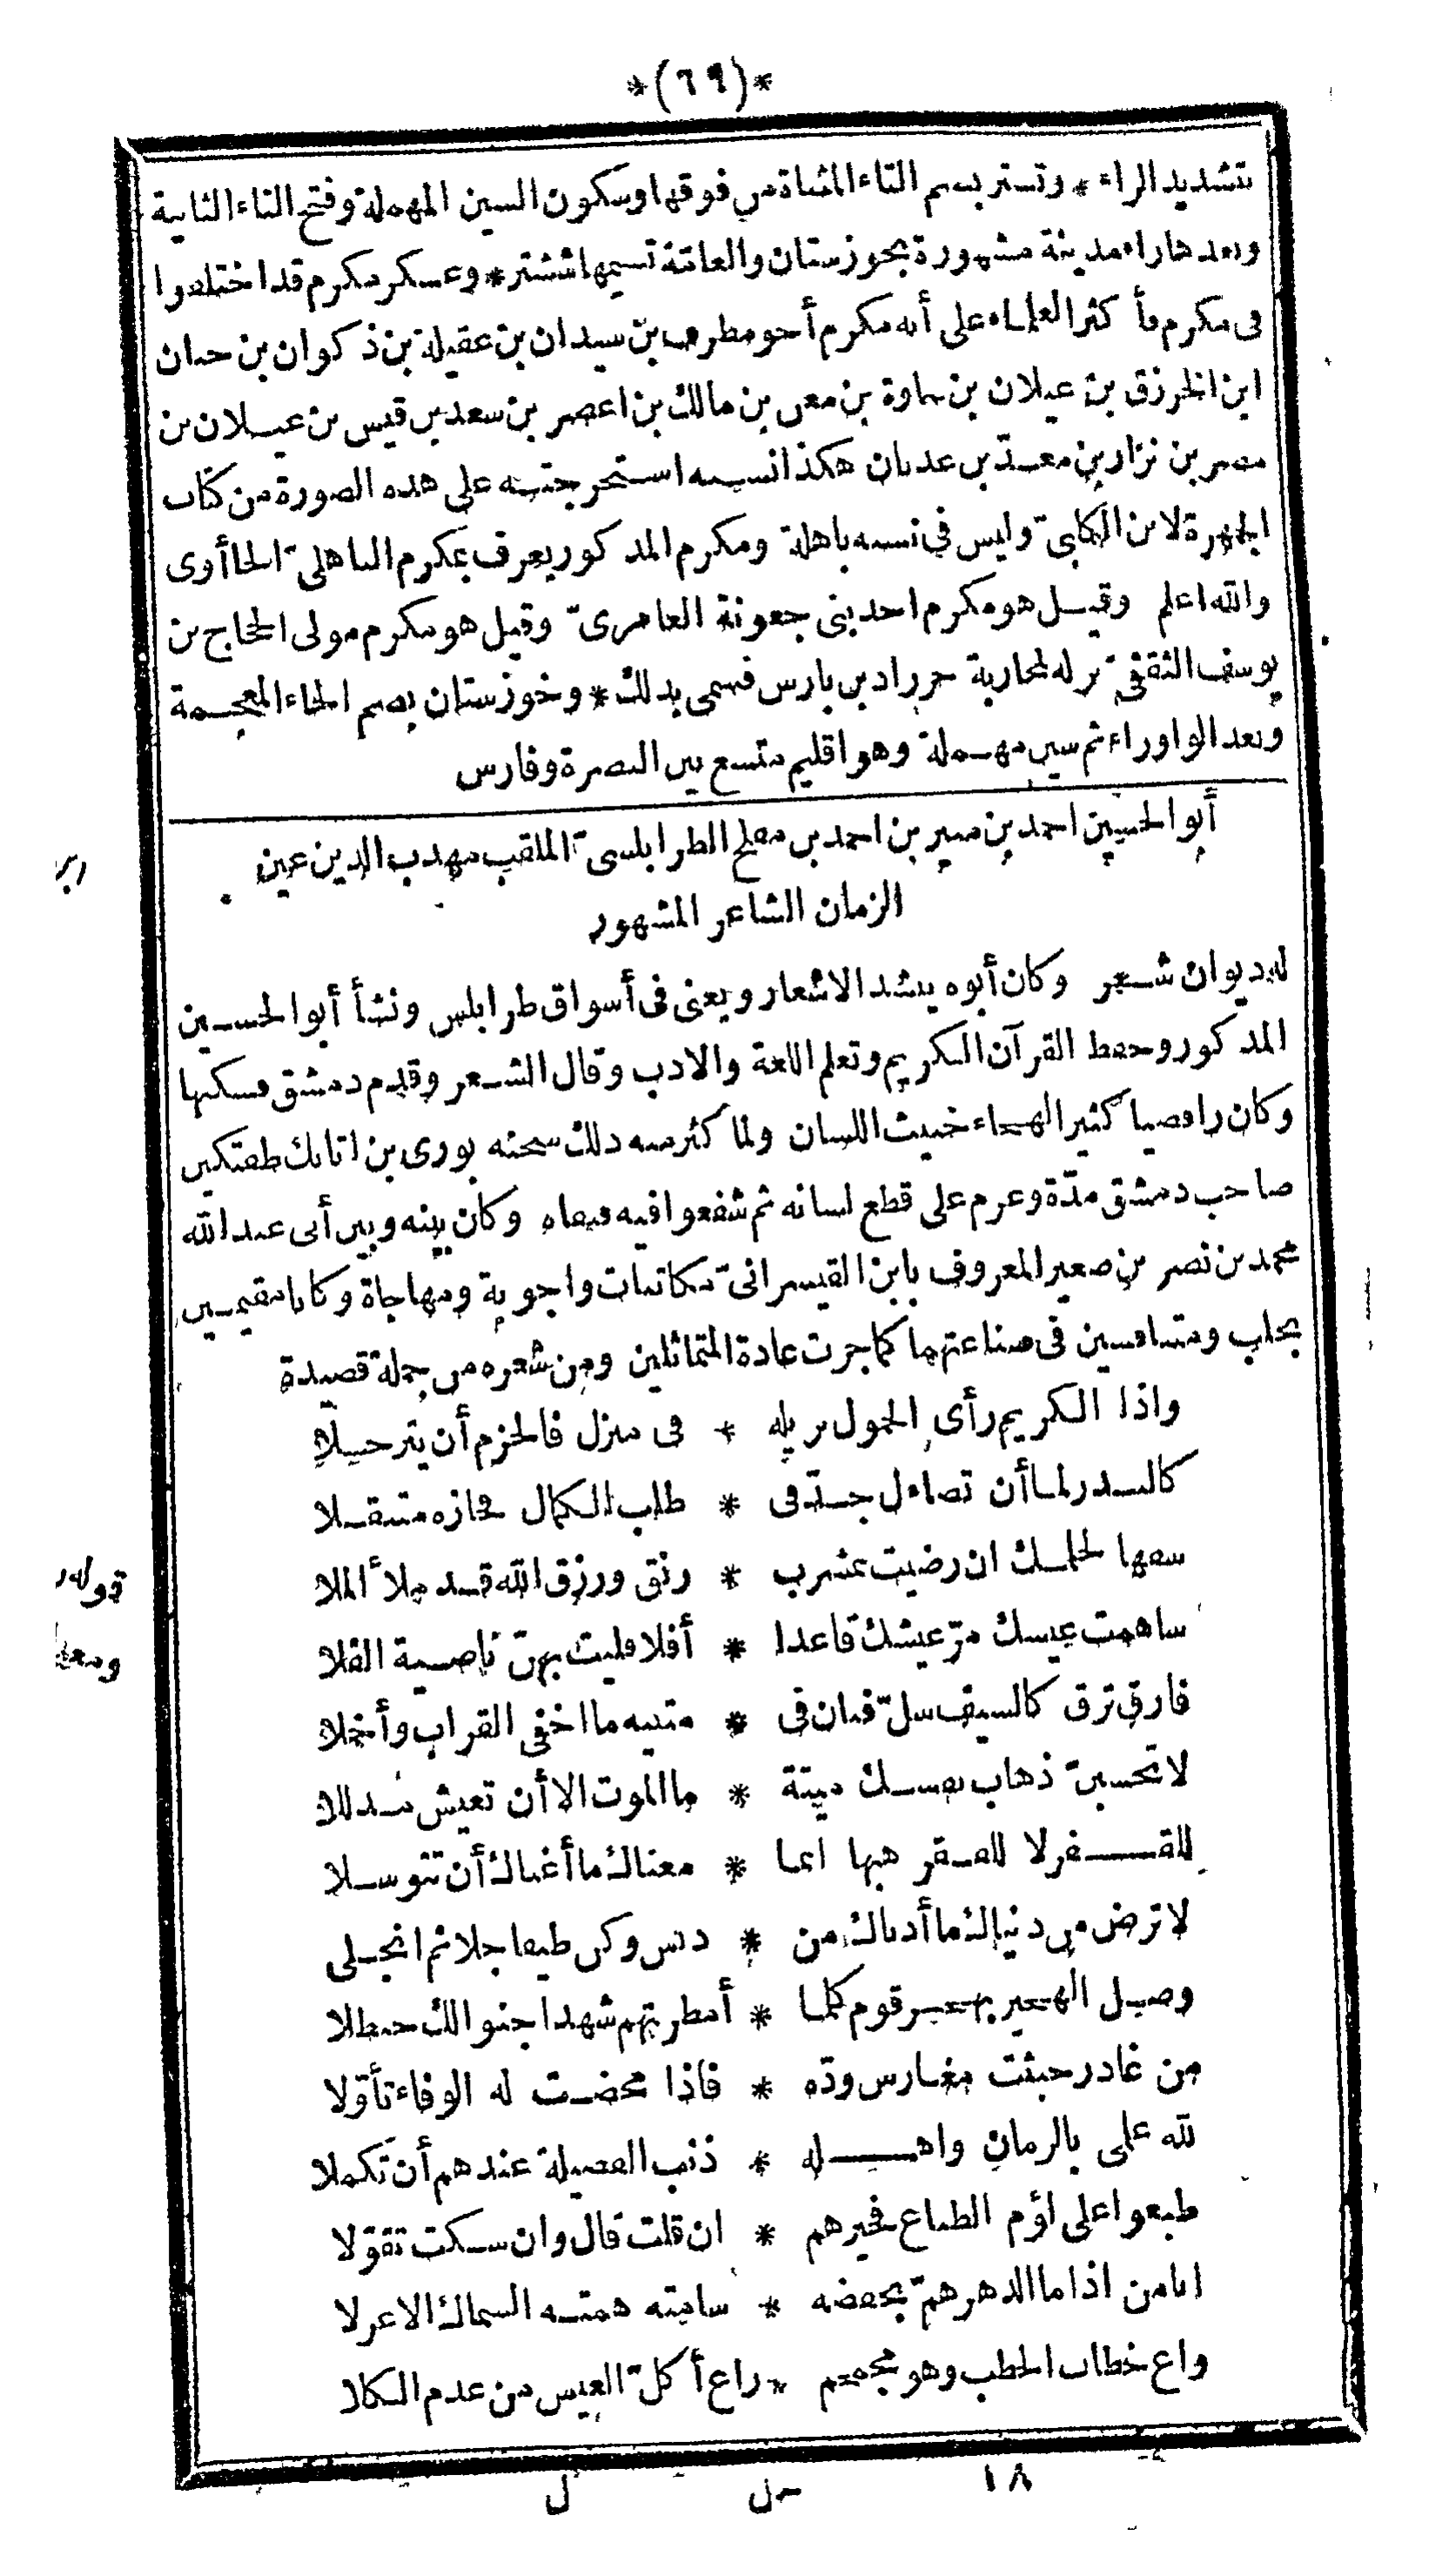 *(٦٩)*
بتشديد الراء * وتستر بضم التاء المثناة من فوقها وسكون السين المهملة وفتح التاء الثانية
وبعدها راء مدينة مشهورة بخوزستان والعامّة تسميها ششتر * وعسكر مكرم قد اختلفوا
فى مكرم فأكثر العلماء على أنه مكرم أخو مطرف بن سيدان بن عقيلة بن ذكوان بن حبان
ابن الخرزق بن عيلان بن حاوة بن معن بن مالك بن اعصر بن سعد بن قيس بن عيلان بن
مضر بن نزار بن معدّ بن عدنان هكذا نسبه استخرجته على هذه الصورة من كتاب
الجمهرة لابن الكلبىّ وليس فى نسبه باهلة ومكرم المذكور يعرف بمكرم الباهلىّ الحاأوى
والله اعلم وقيل هو مكرم احد بنى جعونة العامرىّ وقيل هو مكرم مولى الحجاج بن
يوسف الثقفىّ نزله لمحاربة خرراد بن بارس فسمى بذلك * وخوزستان بضم الخاء المعجمة
وبعد الواو راء ثم سين مهملة وهو اقليم متسع بين البصرة وفارس
أبو الحسين احمد بن منير بن احمد بن مفلح الطرابلسىّ الملقب مهذب الدين عين
الزمان الشاعر المشهور
له ديوان شعر وكان أبوه ينشد الاشعار ويغنى فى أسواق طرابلس ونشأ أبو الحسين
المذكور وحفظ القرآن الكريم وتعلم اللغة والادب وقال الشعر وقدم دمشق فسكنها
وكان رافضيا كثير الهجاء خبيث اللسان ولما كثر منه ذلك سجنه بورى بن اتابك طغتكين
صاحب دمشق مدّة وعزم على قطع لسانه ثم شفعوا فيه فنفاه وكان بينه وبين أبى عبد الله
محمد بن نصر بن صغير المعروف بابن القيسرانىّ مكاتبات واجوبة ومهاجاة وكانا مقيمين
بحلب ومتنافسين فى صناعتهما كما جرت عادة المتماثلين ومن شعره من جملة قصيدة
واذا الكريم رأى الخمول نزيله * فى منزل فالحزم أن يترحلا
كالبدر لما أن تضاءل جدّ فى * طلب الكمال فحازه متنقلا
سفها لحلمك ان رضيت بمشرب * رنق ورزق الله قد ملأ الملا
ساهمت عيسك مرّ عيشك قاعدا * أفلا فليت بهنّ ناصية الفلا
فارق ترق كالسيف سلّ فبان فى * متنيه ما اخفى القراب وأخملا
لا تحسبنّ ذهاب نفسك ميتة * ما الموت الا أن تعيش مذللا
للقفر لا للفقر هبها انما * مغناك ما أغناك أن تتوسلا
لا ترض من دنياك ما أدناك من * دنس وكن طيفا جلا ثم انجلى
وصل الهجير بهجر قوم كلما * أمطرتهم شهدا جنوا لك حنظلا
من غادر خبثت مغارس ودّه * فاذا محضت له الوفاء تأوّلا
لله علمى بالزمان واهله * ذنب الفضيلة عندهم أن تكملا
طبعوا على لؤم الطباع فخيرهم * ان قلت قال وان سكت تقوّلا
انا من اذا ما الدهر همّ بخفضه * سامته همته السماك الاعزلا
واع خطاب الخطب وهو مجمجم * راع أكلّ العيس من عدم الكلا
قوله
١٨ خل ل